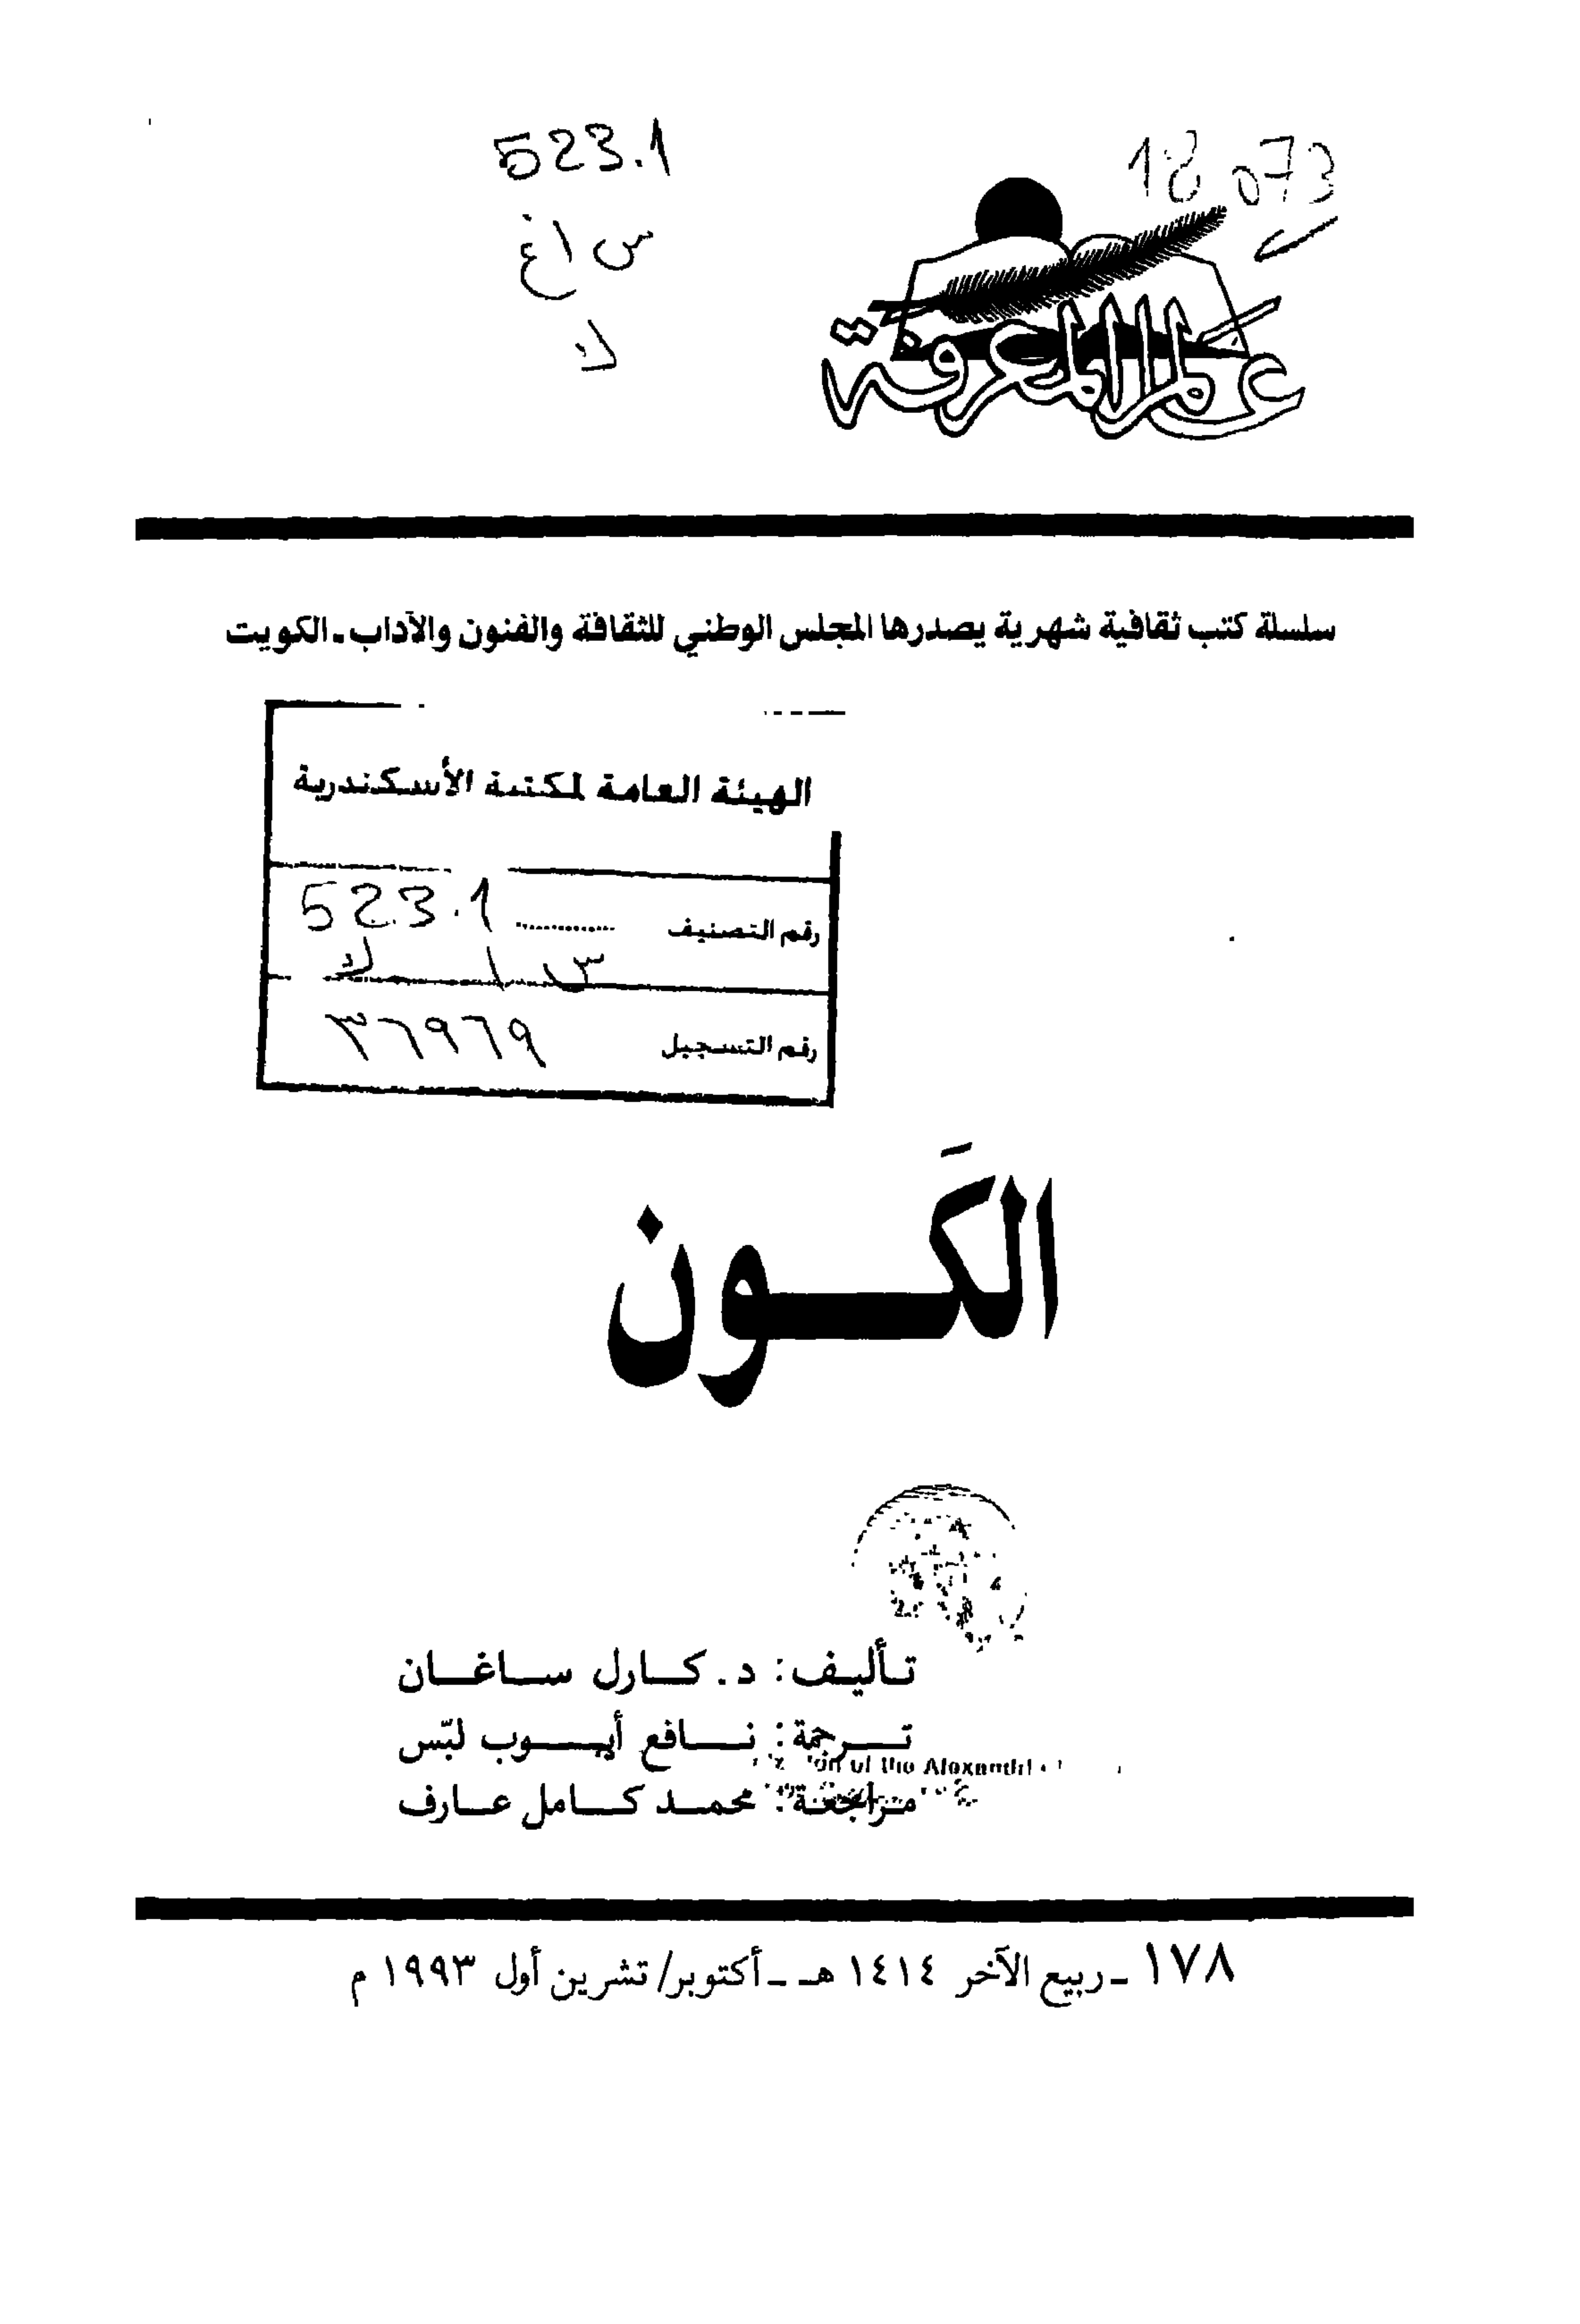 523.1
س اغ
ك
18073
عالم المعرفة
سلسلة كتب ثقافية شهرية يصدرها المجلس الوطني للثقافة والفنون والآداب ـ الكويت
الهيئة العامة لمكتبة الأسكندرية
رقم التصنيف 523.1
س ا ك
رقم التسجيل ٣٦٩٦٩
الكَون
تأليف: د. كارل ساغان
ترجمة: نافع أيوب لبّس
of the Alexandri
مراجعة: محمد كامل عارف
١٧٨ ـ ربيع الآخر ١٤١٤ هـ ـ أكتوبر/ تشرين أول ١٩٩٣ م